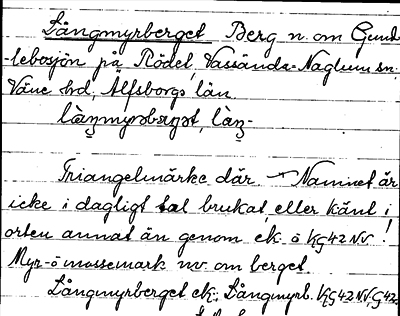 Långmyrberget Berg n. om Gund-
-lebosjön på Rödet, Vassända-Naglum sn.
Väne hd, Älfsborgs län.
Triangelmärke där. — Namnet är
icke i dagligt tal brukat, eller känt i
orten annat än genom ek. o KG42NV!
Myr- o mossemark nv. om berget.
Långmyrberget ek; Långmyrb. KG42NV, G42.